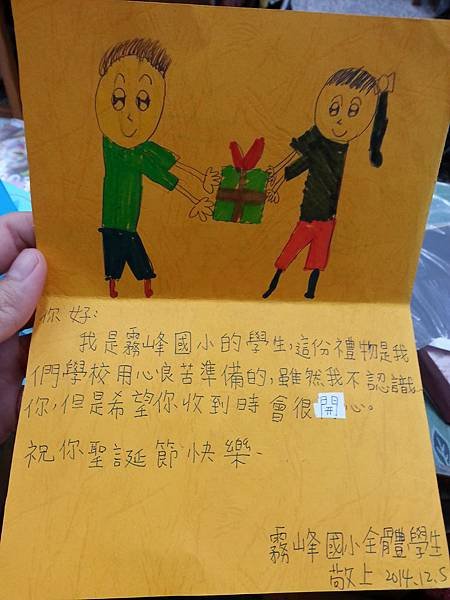 你好:
我是霧峰國小的學生,這份禮物是我
們學校用心良苦準備的,雖然我不認識
你,但是希望你收到時會很開心。
祝你聖誕節快樂、
霧峰國小全體學生
敬上 2014.12.5